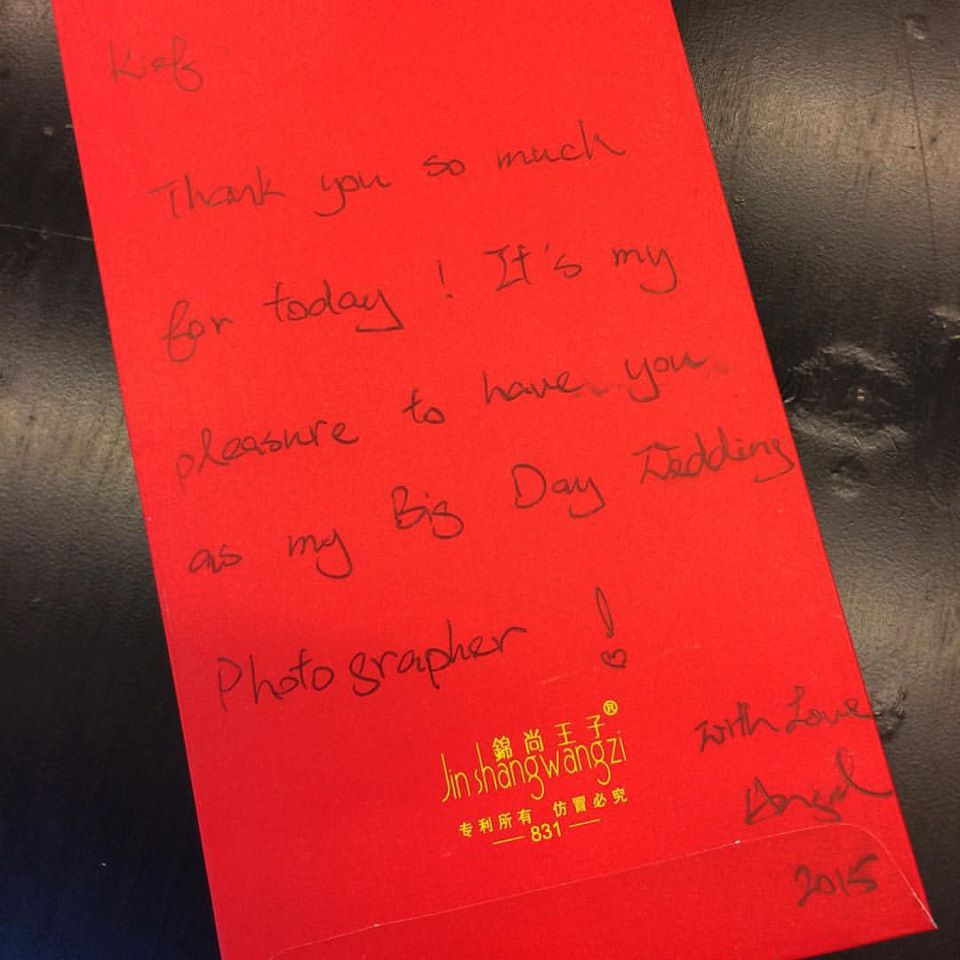 Thank you so much
for today! It's my
pleasure to have you
as my Big Day Wedding
Photographer!
錦尚王子®
Jinshangwangzi
专利所有 仿冒必究
831
With Love
Angel
2015